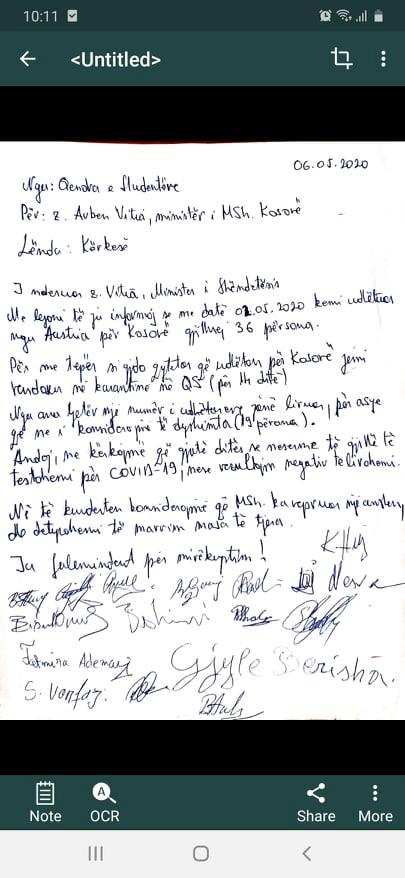 10:11
<Untitled>
06.05.2020
Nga: Qendra e Studentëve
Për: z. Arben Vitia, ministër i MSh. Kosovë
Lënda: Kërkesë
I nderuar z. Vitia, Ministër i Shëndetësis
Me lejoni të ju informoj se me datë 02.05.2020 kemi udhëtuar
nga Austria për Kosovë gjithsej 36 persona.
Për me tepër si çdo qytetar që udhëton për Kosovë jemi
vendosur në karantinë në QS (për 14 ditë)
Nga ana tjetër një numër i udhëtareve janë liruar, për arsye
që ne i konsiderojmë të dyshimta (19 persona).
Andaj, ne kërkojmë që gjatë ditës se nesërme të gjithë të
testohemi për COVID-19, nese rezultojm negativ të lirohemi.
Në të kundërten konsiderojmë që MSh. ka vepruar një anshëm,
do detyrohemi të marrim masa të tjera.
Ju falemnderit për mirëkuptim!
Nesa
Fatmira Ademaj
Gjyle Berisha.
Note
OCR
Share
More